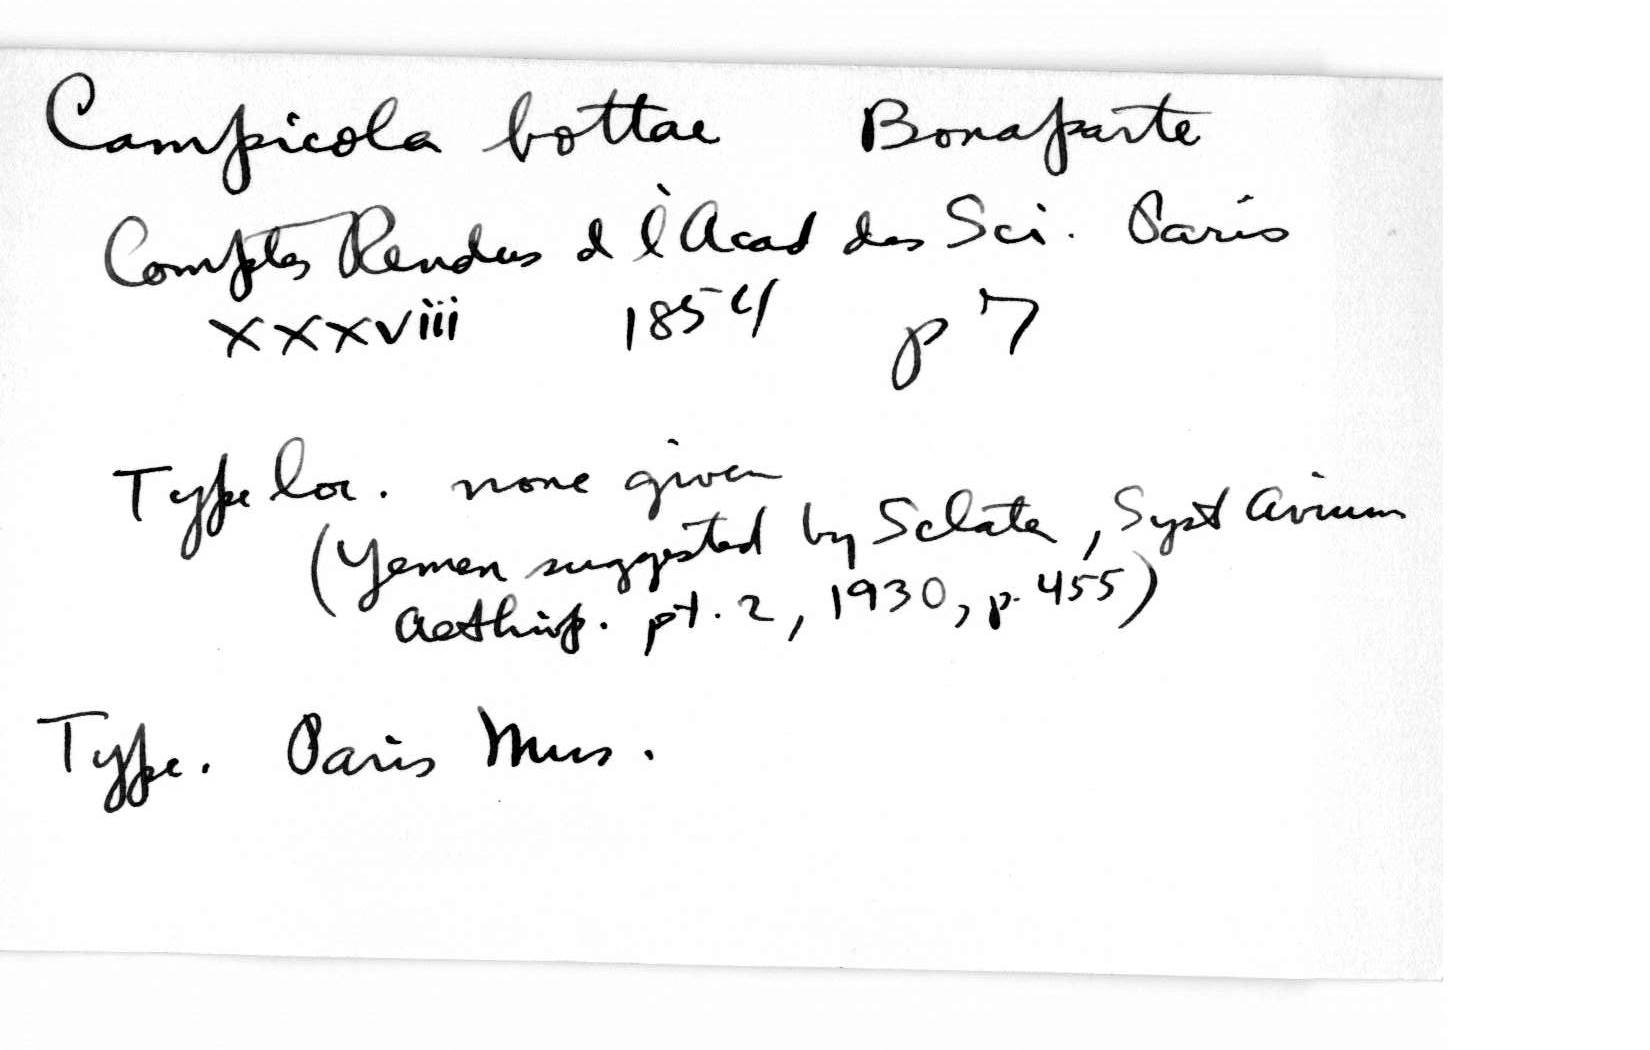 Campicola bottae Bonaparte
Comptes Rendus d l'Acad des Sci. Paris
xxxviii 1854 p 7
Type loc. none given
(Yemen suggested by Sclater, Syst Avium
Aethiop. pt. 2, 1930, p. 455)
Type. Paris Mus.